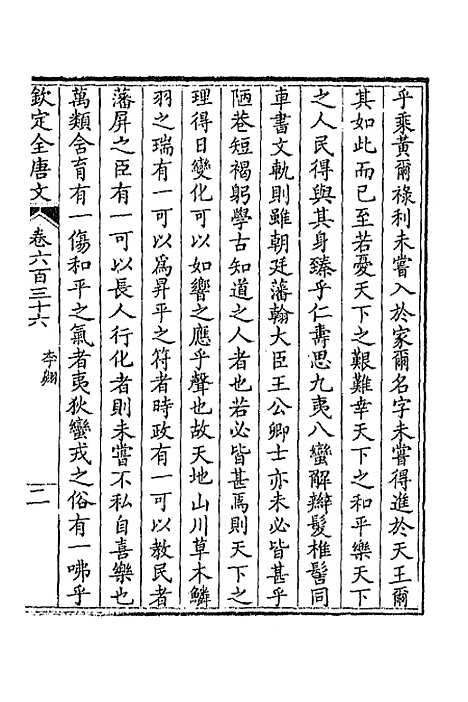 乎乘黃爾祿利未嘗入於家爾名字未嘗得進於天王爾
其如此而已至若憂天下之艱難幸天下之和平樂天下
之人民得與其身臻乎仁壽思九夷八蠻解辮髮椎髻同
車書文軌則雖朝廷藩翰大臣王公卿士亦未必皆甚乎
陋巷短褐躬學古知道之人者也若必皆甚焉則天下之
理得日變化可以如響之應乎聲也故天地山川草木鱗
羽之瑞有一可以為昇平之符者時政有一可以教民者
藩屏之臣有一可以長人行化者則未嘗不私自喜樂也
萬類含育有一傷和平之氣者夷狄蠻戎之俗有一咈乎
欽定全唐文 卷六百三十六 李翱 二